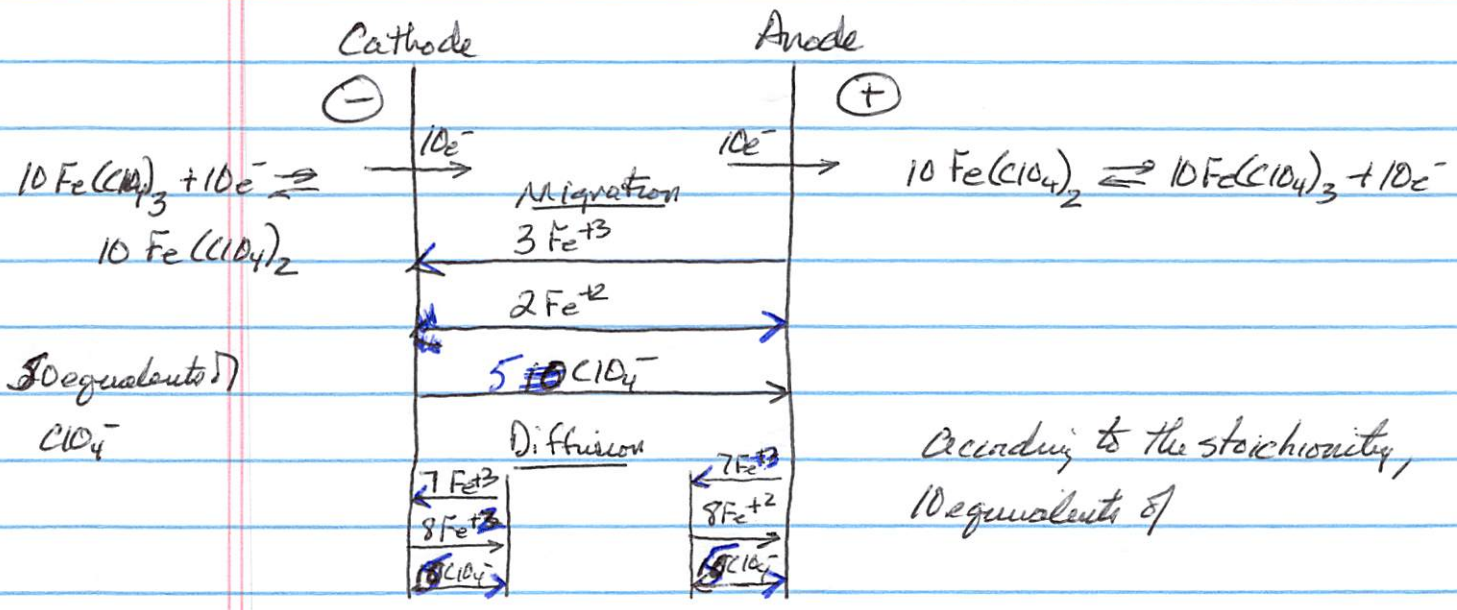 Cathode Anode
⊖ ⊕
10e⁻ 10e⁻
10 Fe(ClO₄)₃ + 10e⁻ ⇌ 10 Fe(ClO₄)₂ ⇌ 10 Fe(ClO₄)₃ + 10e⁻
10 Fe(ClO₄)₂
Migration
3 Fe⁺³
2 Fe⁺²
5 ClO₄⁻
equivalents of
ClO₄⁻
Diffusion
7 Fe⁺³ 7 Fe⁺³
8 Fe⁺² 8 Fe⁺²
5 ClO₄⁻ 5 ClO₄⁻
According to the stoichiomity,
10 equivalents of